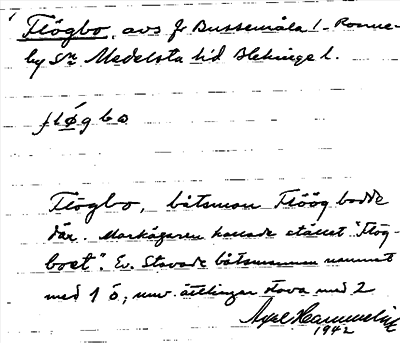 Flögbo, avs fr Bussemåla 1 Ronne-
by Sn Medelsta hd Blekinge l.
flögbo
Flögbo, båtsman Flöög bodde
där. Markägaren kallade stället "Flög-
bost". Ev. Stavade båtsmannen namnet
med 1 ö, nuv. ättlingar stava med 2
1942